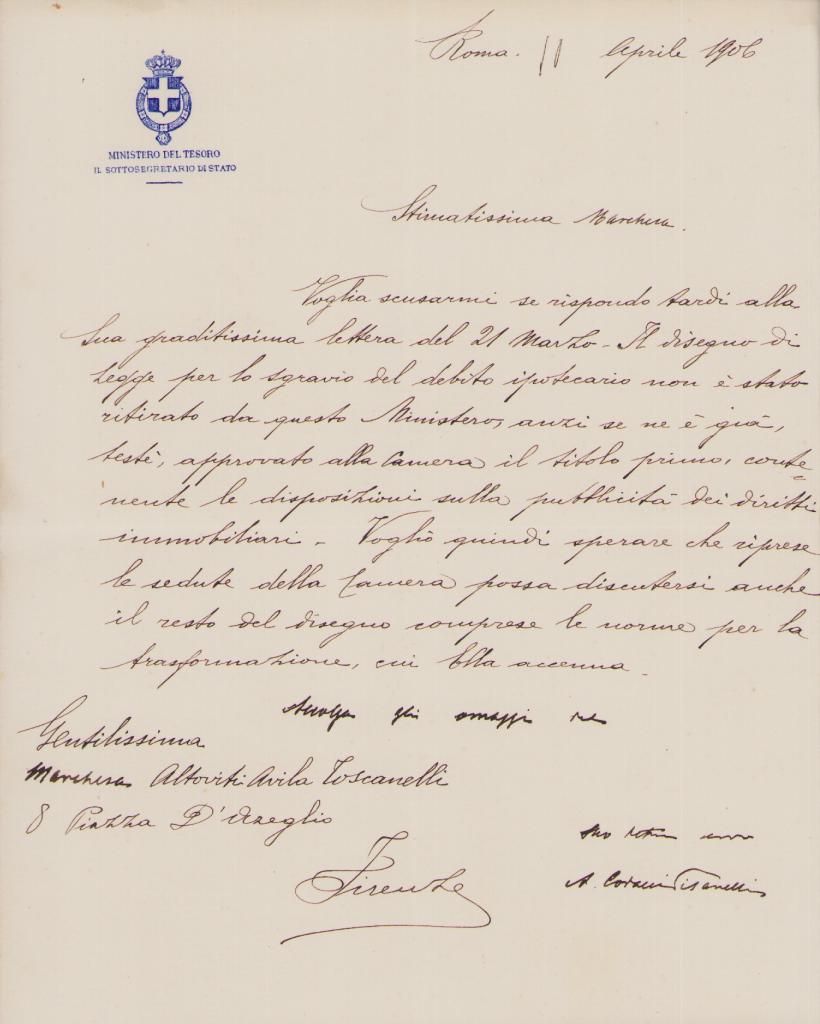 Roma. 11 Aprile 1906
MINISTERO DEL TESORO
IL SOTTOSEGRETARIO DI STATO
Stimatissima Marchesa.
Voglia scusarmi se rispondo tardi alla
Sua graditissima lettera del 21 Marzo - Il disegno di
legge per lo sgravio del debito ipotecario non è stato
ritirato da questo Ministero, anzi se ne è già,
testè, approvato alla Camera il titolo primo, conte=
nente le disposizioni sulla pubblicità dei diritti
immobiliari - Voglio quindi sperare che riprese
le sedute della Camera possa discutersi anche
il resto del disegno comprese le norme per la
trasformazione, cui Ella accenna.
Accolga gli omaggi del
Gentilissima
Marchesa Altoviti Avila Toscanelli
8 Piazza D'Azeglio
Firenze
Suo
A.